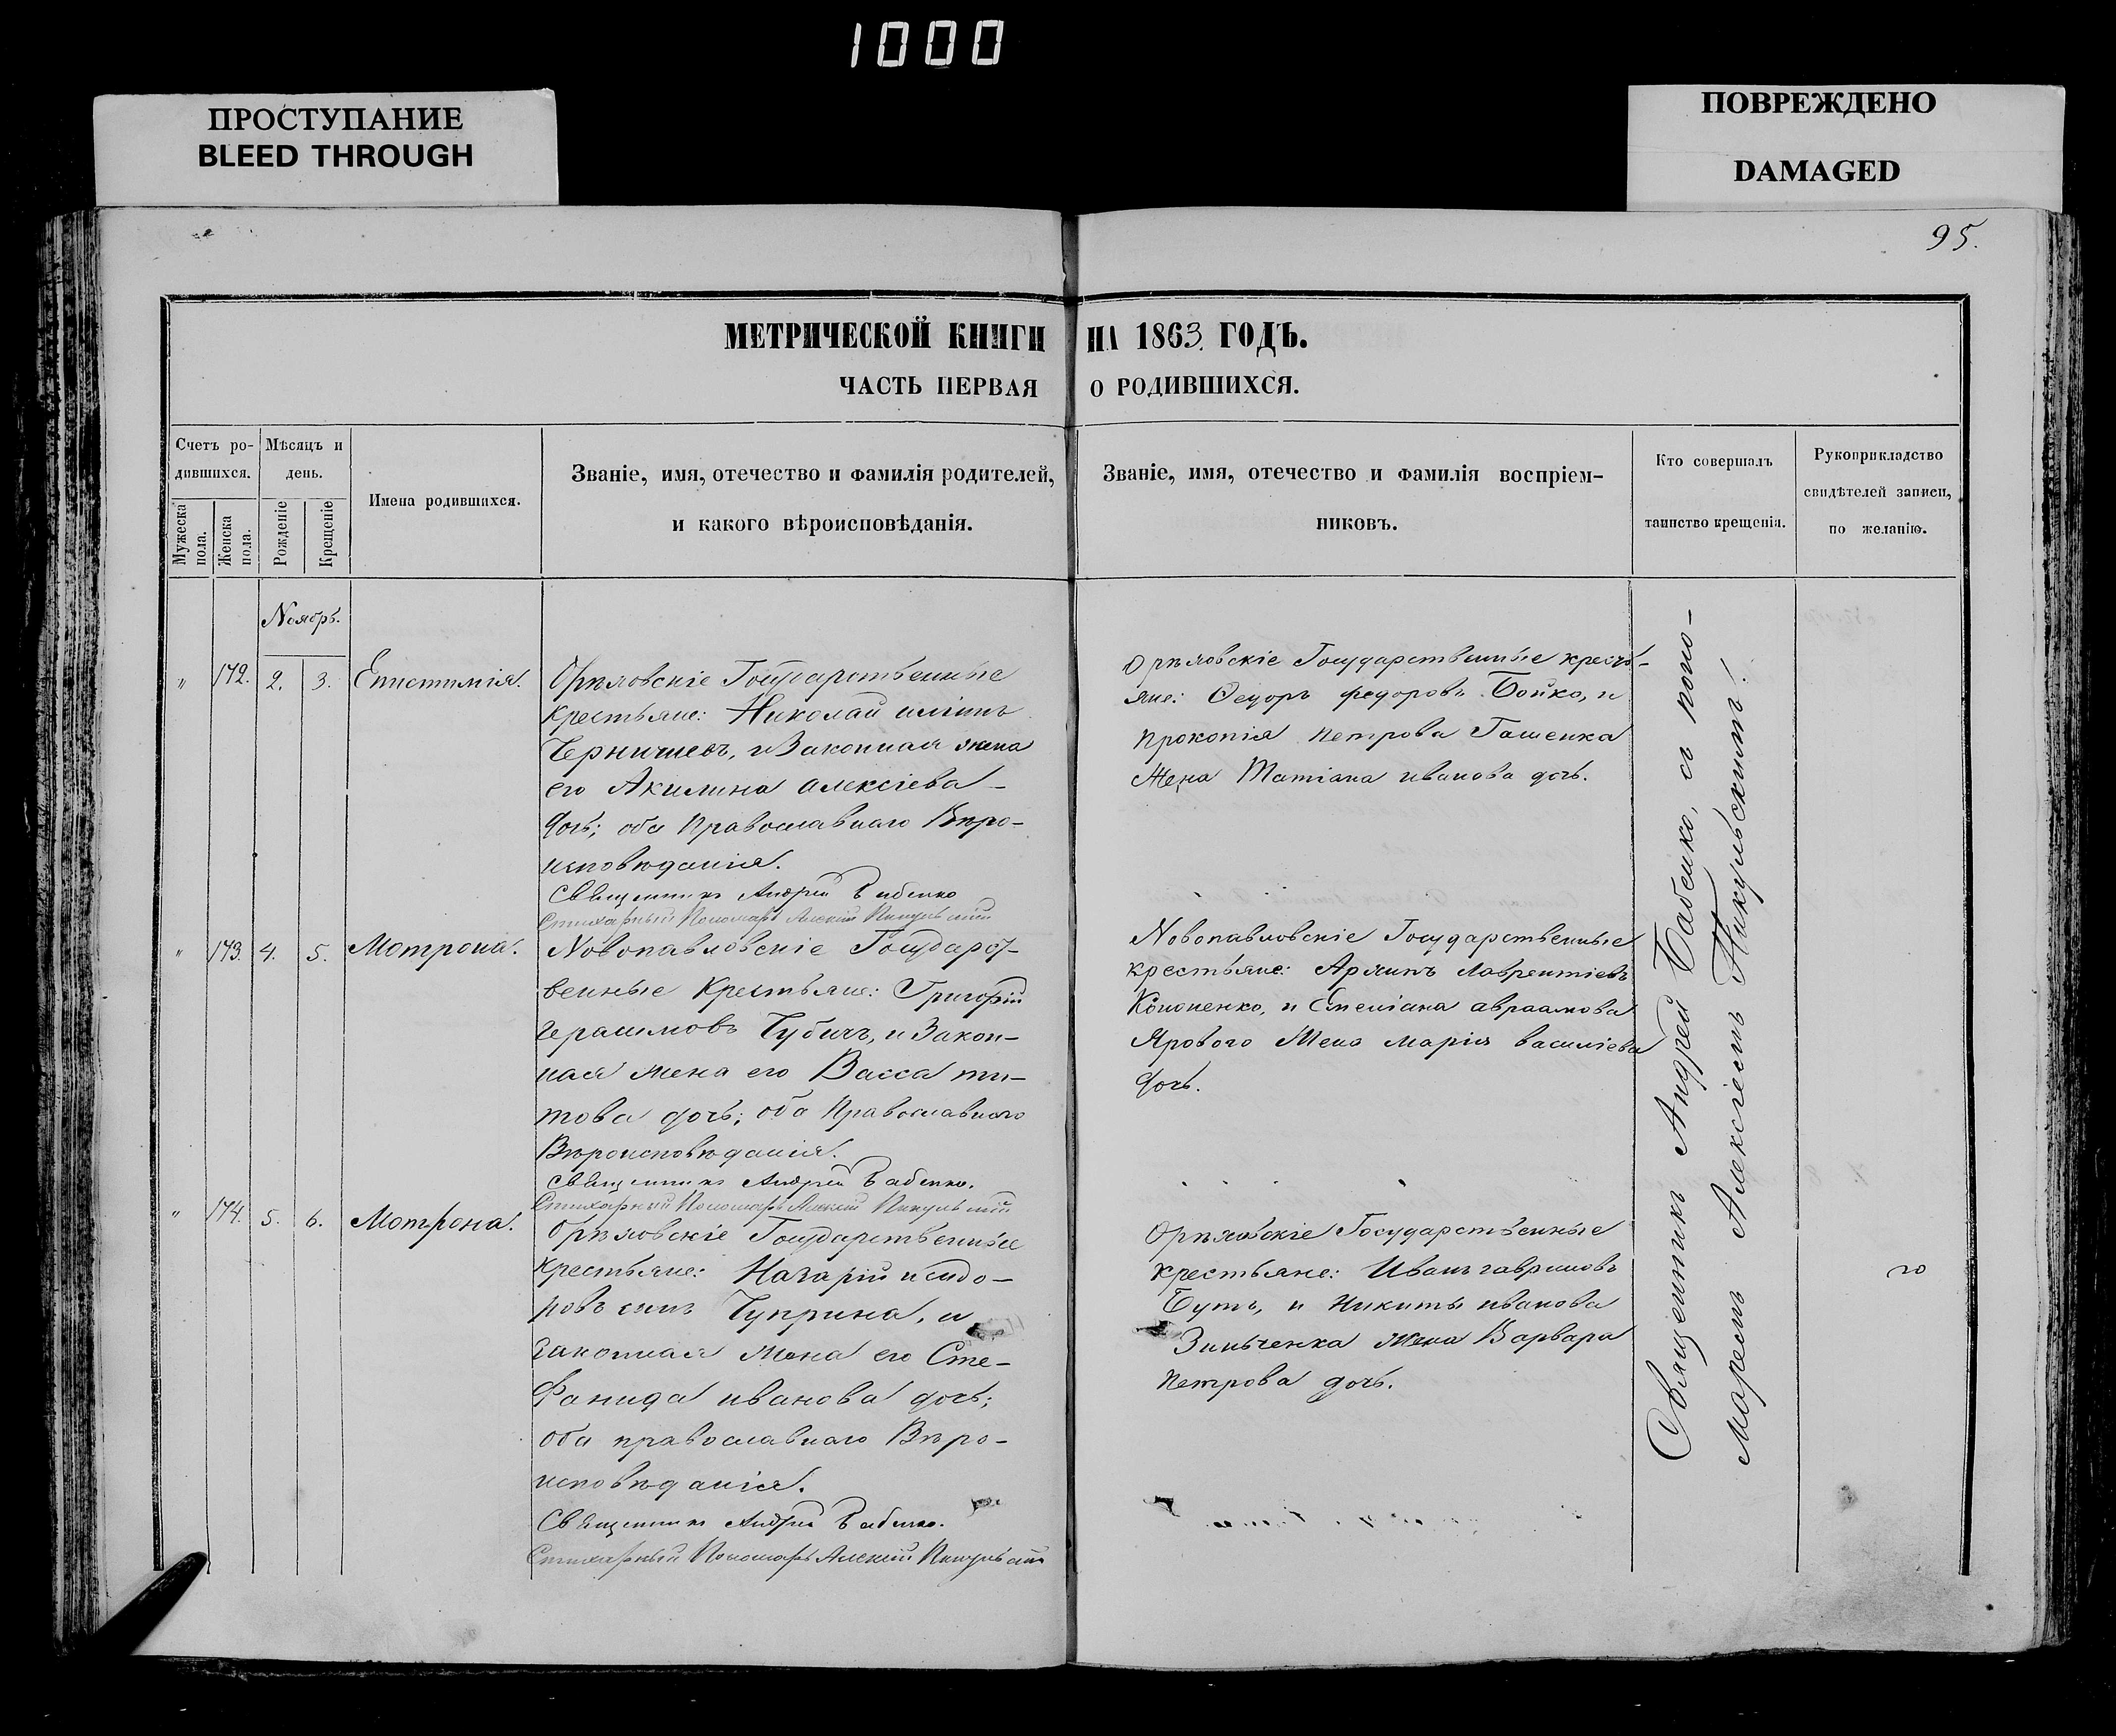 1000
ПРОСТУПАНИЕ
BLEED THROUGH
ПОВРЕЖДЕНО
DAMAGED
95.
МЕТРИЧЕСКОЙ КНИГИ НА 1863 ГОДЪ.
ЧАСТЬ ПЕРВАЯ О РОДИВШИХСЯ.
Счетъ ро-
дившихся.
Мужеска пола.
Женска пола.
Мѣсяцъ и
день.
Рожденіе
Крещеніе
Имена родившихся.
Званіе, имя, отечество и фамилія родителей,
и какого вѣроисповѣданія.
Званіе, имя, отечество и фамилія воспріем-
никовъ.
Кто совершалъ
таинство крещенія.
Рукоприкладство
свидѣтелей записи,
по желанію.
Ноябрь.
" 172. 2. 3. Епистимія.
Орѣловскіе Государственные
крестьяне: Николай
и Законная жена
его Акилина алексіева
дочь; оба Православнаго Вѣро-
исповѣданія.
Священникъ Андрей Бабенко
Стихарный Пономарь Алексій Пикульскій
Орѣловскіе Государственные кресть-
яне: Ѳедоръ федоровъ Бойко, и
Прокопія Петрова Гашенка
жена Татіана иванова дочь.
" 173. 4. 5. Мотрона.
Новопавловскіе Государст-
венные Крестьяне: Григорій
герасимовъ и Закон-
ная жена его Васса ти-
това дочь; оба Православнаго
Вѣроисповѣданія.
Священникъ Андрей Бабенко.
Стихарный Пономарь Алексій Пикульскій
Новопавловскіе Государственные
крестьяне: лаврентіевъ
Кононенко, и Емеліана авраамова
Ярового жена марія василіева
дочь.
" 174. 5. 6. Мотрона.
Орѣловскіе Государственные
крестьяне: Назарій исидо-
ровъ сынъ Чуприна, и
законная жена его Сте-
фанида иванова дочь;
оба православнаго Вѣро-
исповѣданія.
Священникъ Андрей Бабенко.
Стихарный Пономарь Алексій Пикульскій
Орѣловскіе Государственные
крестьяне: Иванъ гавриловъ
Бутъ, и Никиты иванова
Зинченка жена Варвара
Петрова дочь.
Священникъ Андрей Бабенко, съ поно-
маремъ Алексіемъ Пикульскимъ!